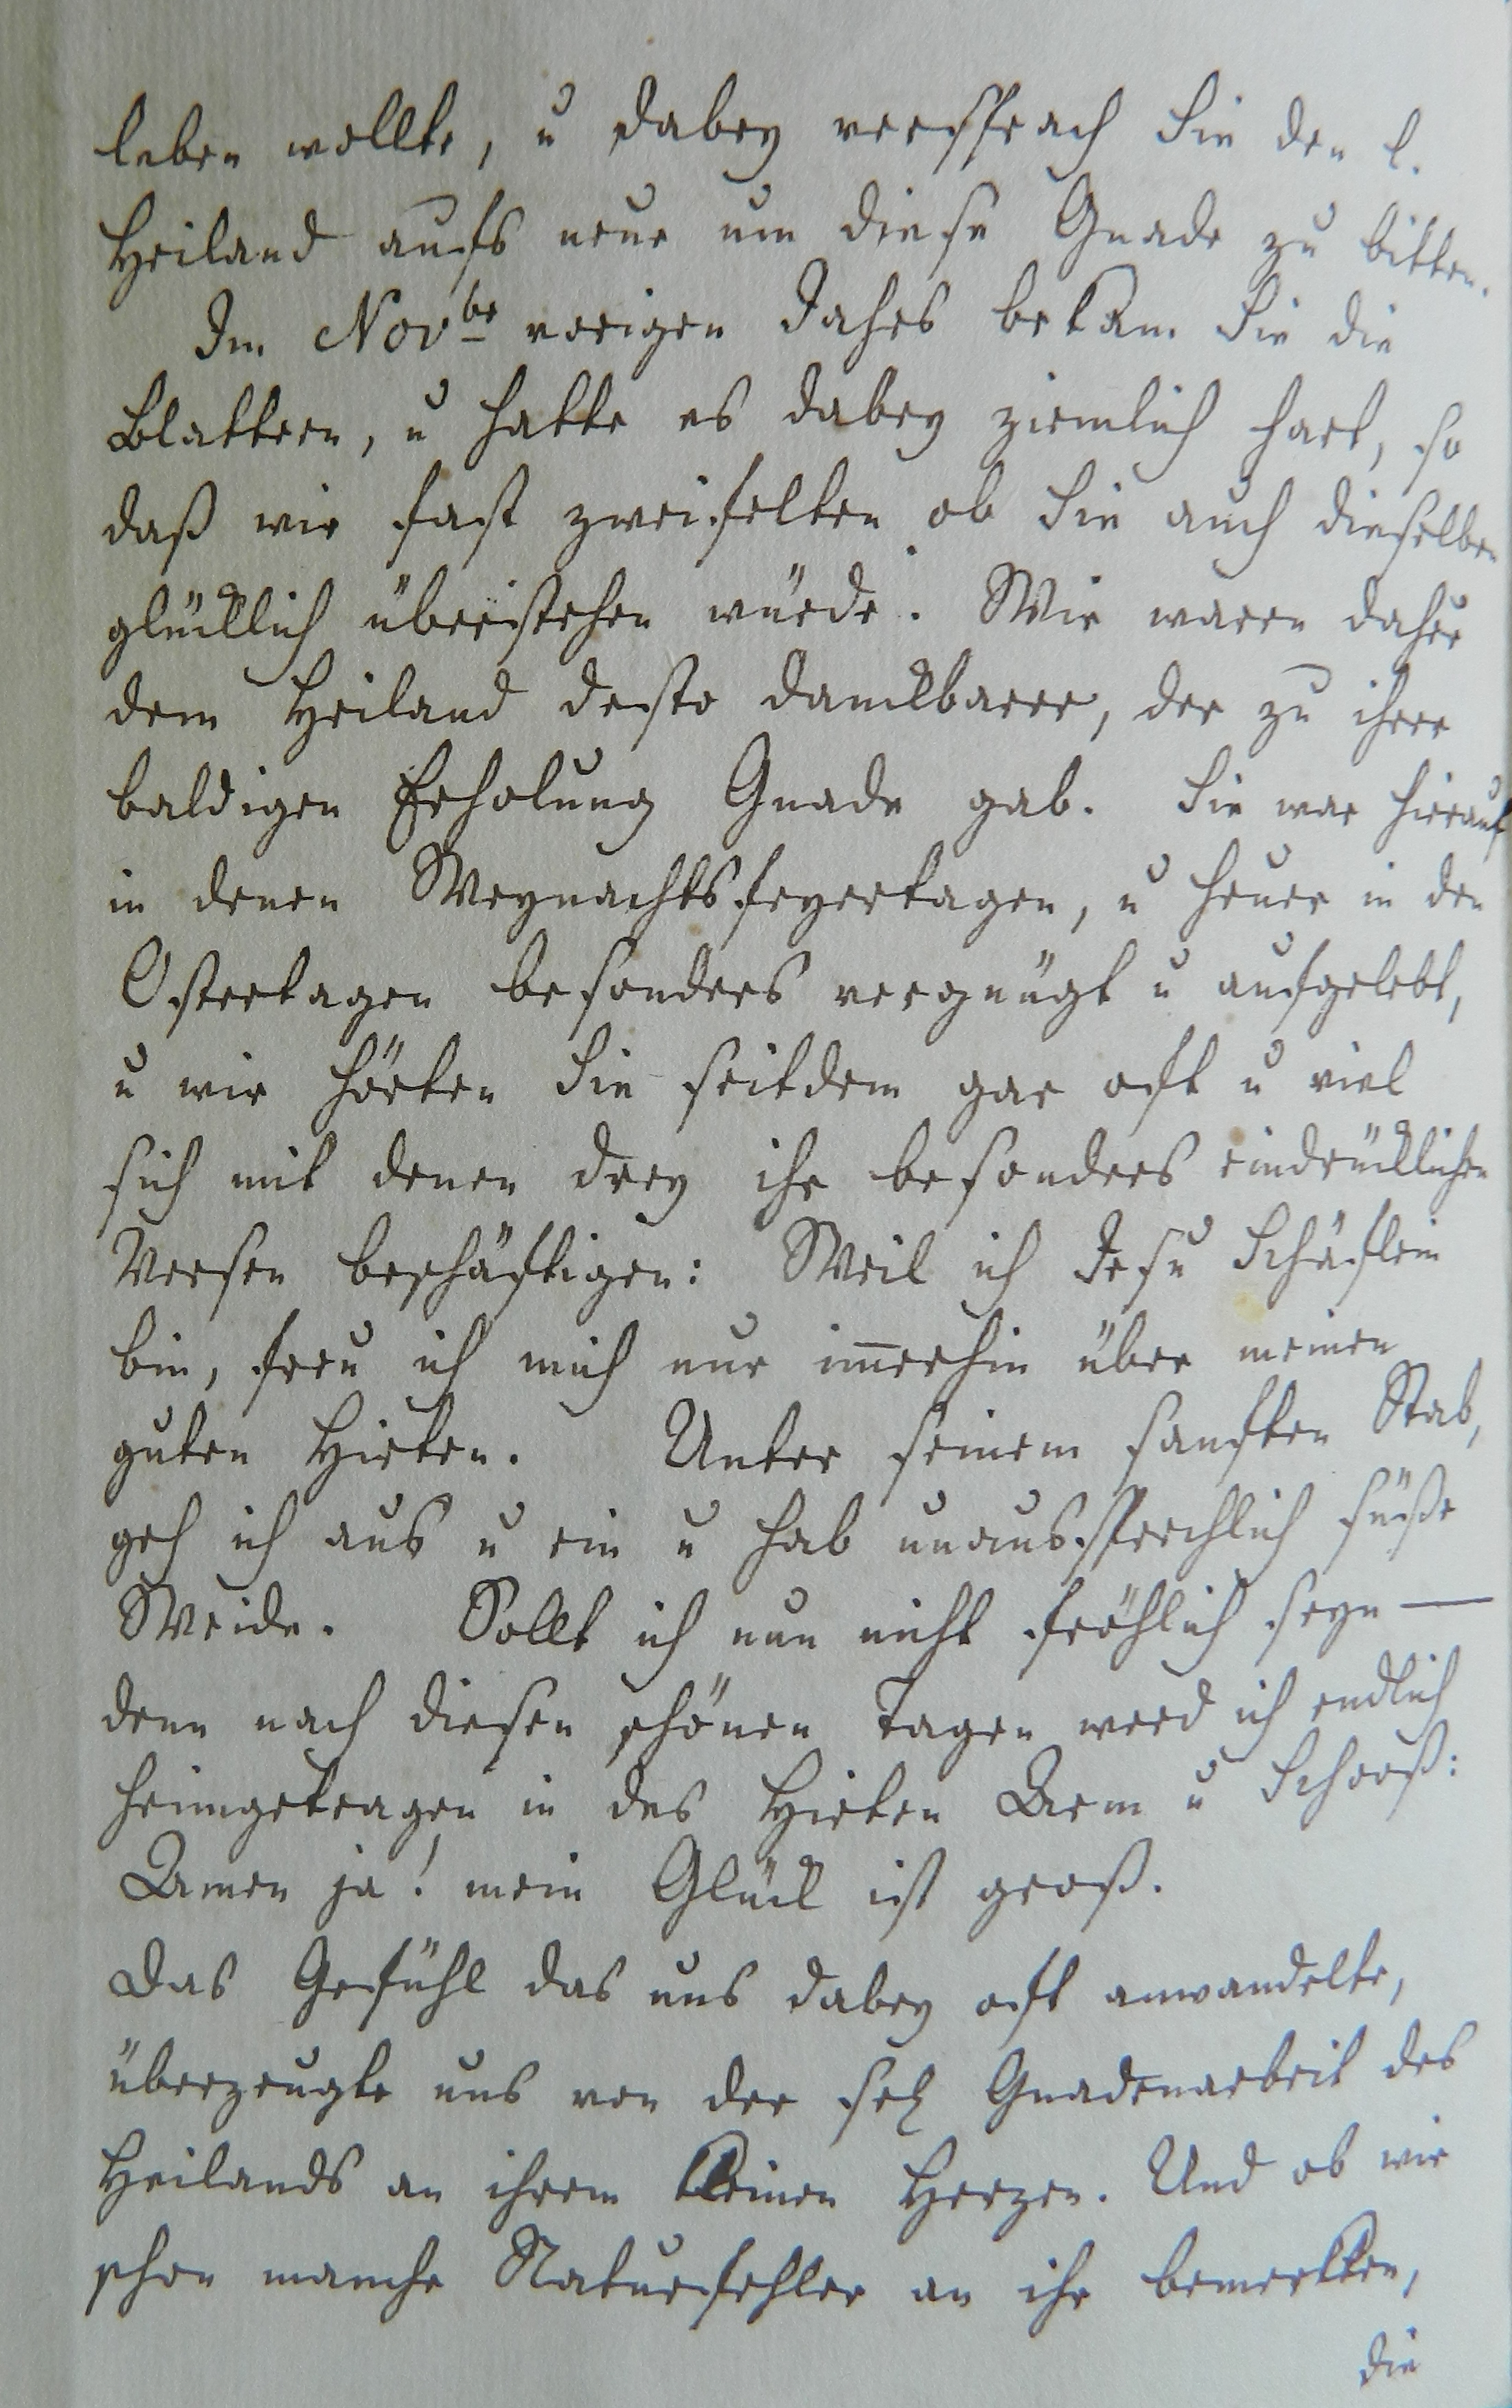 leben wollte, u dabey versprach Sie den l.
Heiland aufs neue um diese Gnade zu bitten.
Im Novbr vorigen Jahrs bekam Sie die
Blattern, u hatte es dabey ziemlich hart, so
daß wir fast zweifelten ob Sie auch dieselben
glücklich überstehen würde. Wir waren daher
dem Heiland desto danckbarer, der zu ihrer
baldigen Erholung Gnade gab. Sie war hierauf
in denen Weynachtsfeyertagen, u heuer in den
Ostertagen besonders vergnügt u aufgelebt,
u wir hörten Sie seitdem gar oft u viel
sich mit denen drey ihr besonders eindrücklichen
Versen beschäftigen: Weil ich Jesu Schäflein
bin, freu ich mich nur im̅erhin über meinen
guten Hirten. Unter seinem sanften Stab,
geh ich aus u ein u hab unaussprechlich süße
Weide. Sollt ich nun nicht fröhlich seyn —
denn nach diesen schönen Tagen werd ich endlich
heimgetragen in des Hirten Arm u Schooß:
Amen ja! mein Glück ist groß.
Das Gefühl das uns dabey oft anwandelte,
überzeugte uns von der sel Gnadenarbeit des
Heilands an ihrem kleinen Herzen. Und ob wir
schon manche Naturfehler an ihr bemerkten,
die